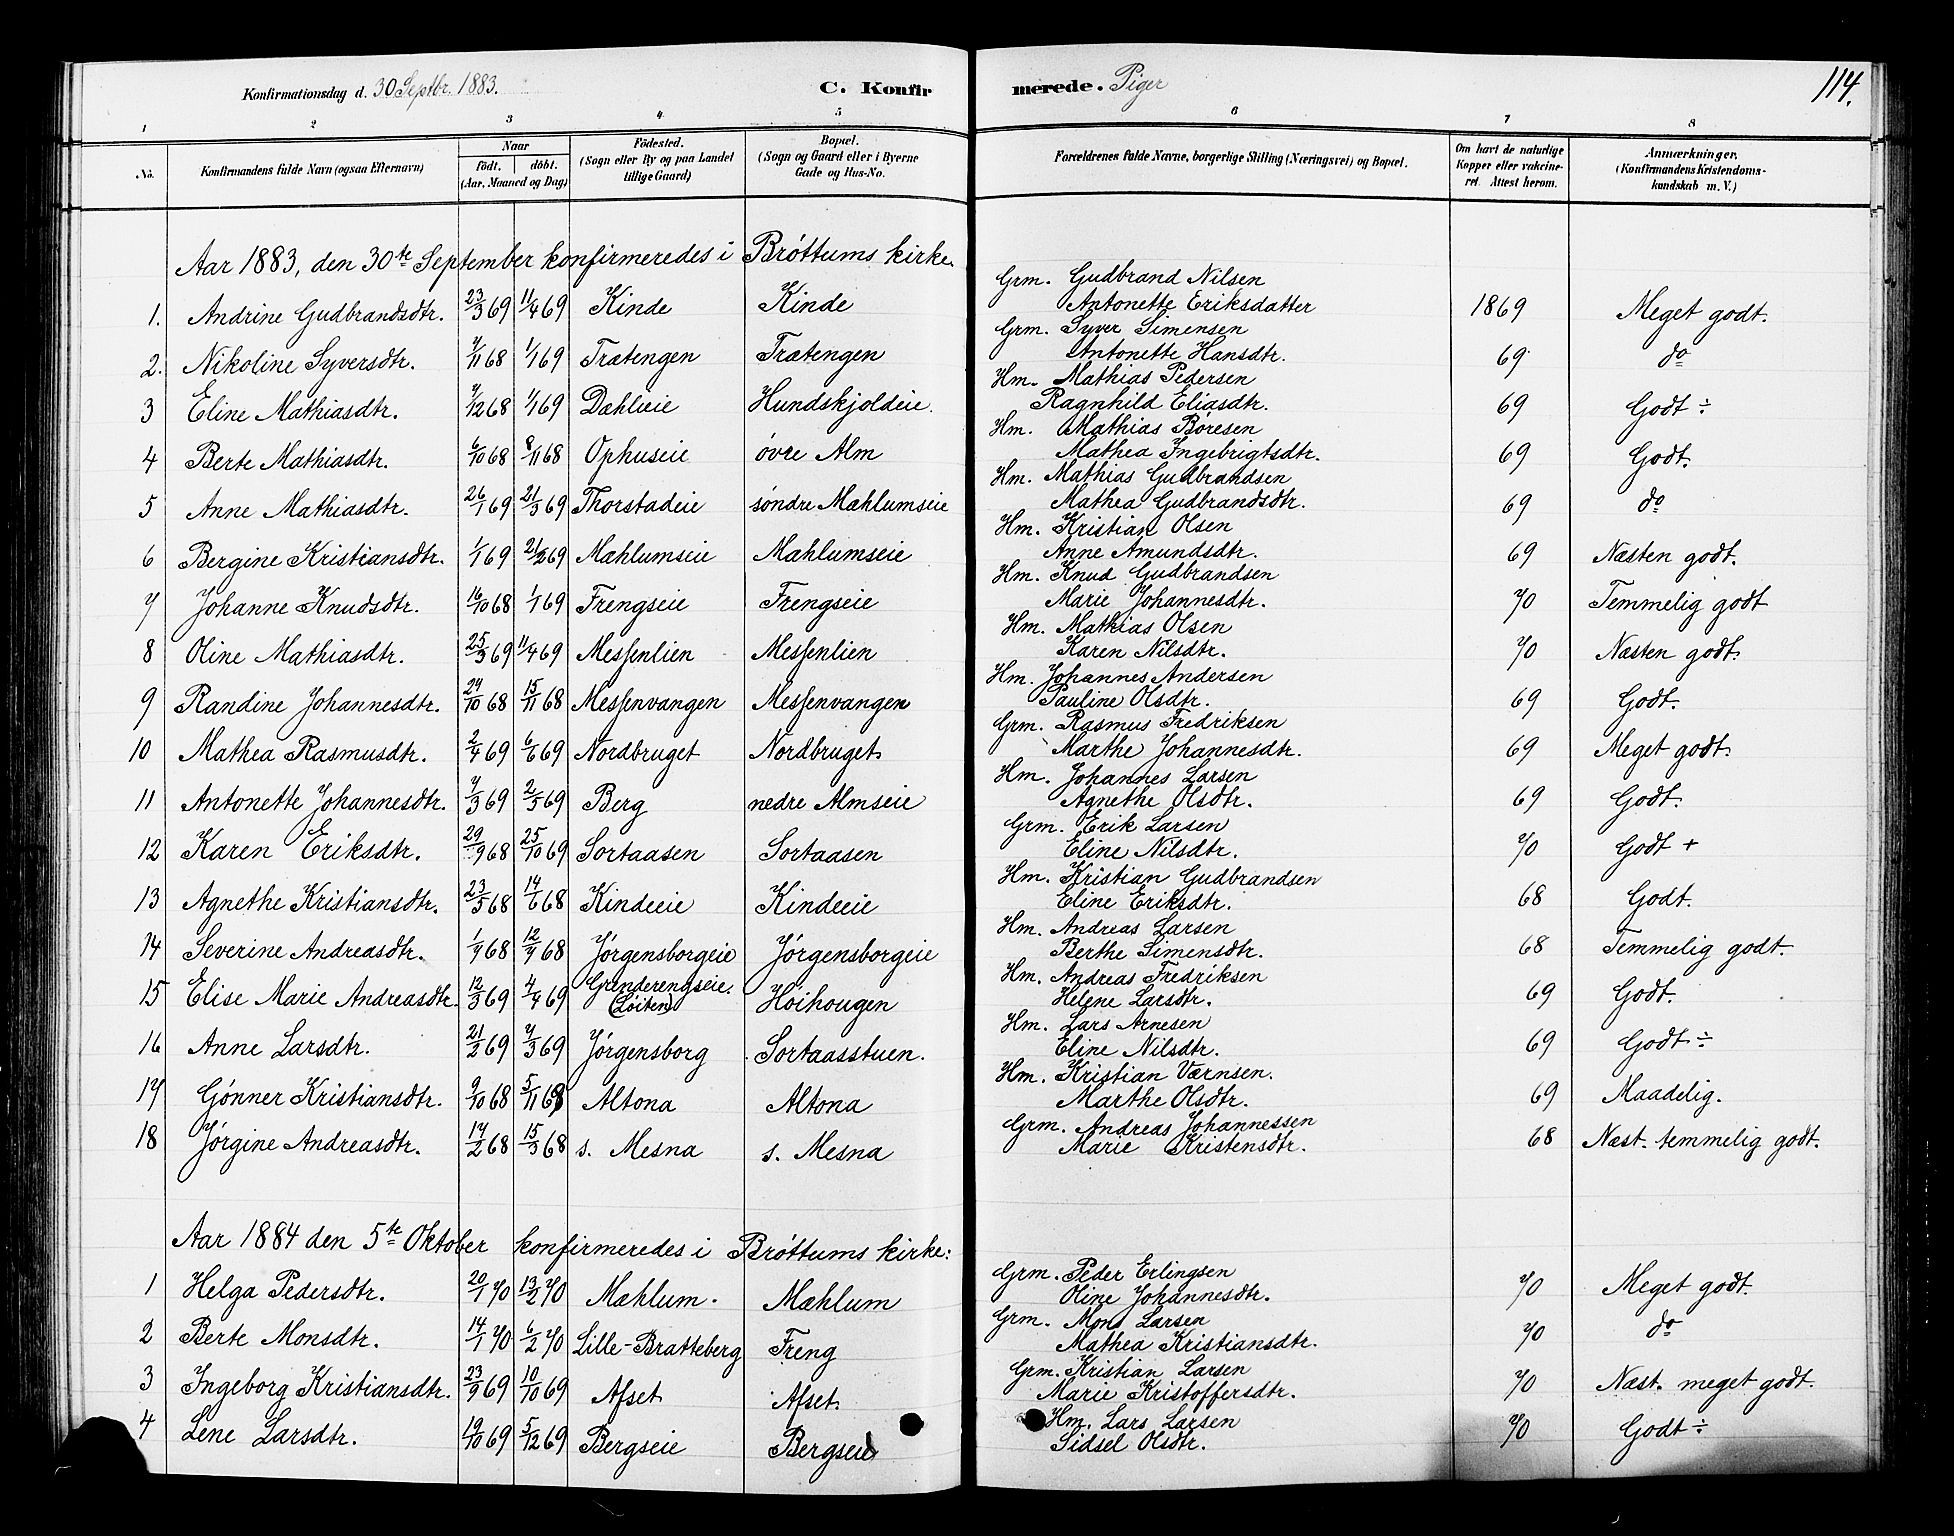 Konfirmationsdag d. 30 Septbr. 1883. C. Konfirmerede. Piger 114.
1 2 3 4 5 6 7 8
No. Konfirmandens fulde Navn (ogsaa Efternavn) Naar födt. döbt. (Aar, Maaned og Dag) Födested. (Sogn eller By og paa Landet tillige Gaard) Bopæl. (Sogn og Gaard eller i Byerne Gade og Hus-No. Forældrenes fulde Navne, borgerlige Stilling (Næringsvei) og Bopæl. Om havt de naturlige Kopper eller vakcineret. Attest herom. Anmærkninger. (Konfirmandens Kristendomskundskab m. V.)
Aar 1883, den 30te September konfirmeredes i Brøttums kirke.
1. Andrine Gudbrandsdtr. 23/3 69 11/4 69 Kinde Kinde Grm. Gudbrand Nilsen Antonette Eriksdatter 1869 Meget godt.
2. Nikoline Syversdtr. 7/11 68 1/1 69 Trætengen Trætengen Grm. Syver Simensen Antonette Hansdtr. 69 do
3 Eline Mathiasdtr. 7/12 68 1/1 69 Dahlieie Hundskjoldeie. Hm. Mathias Pedersen Ragnhild Eliasdtr. 69 Godt ÷
4 Berte Mathiasdtr. 6/10 68 8/11 68 Ophuseie øvre Alm Hm. Mathias Børesen Mathea Ingebrigtsdtr. 69 Godt.
5 Anne Mathiasdtr. 26/1 69 21/3 69 Thorstadeie søndre Mæhlumseie Hm. Mathias Gudbrandsen Mathea Gudbrandsdtr. 69 do
6 Bergine Kristiansdtr. 1/1 69 21/2 69 Mæhlumseie Mæhlumseie Hm. Kristian Olsen Anne Amundsdtr. 69 Næsten godt.
7 Johanne Knudsdtr. 16/10 68 1/1 69 Frengseie Frengseie Hm. Knud Gudbrandsen Marie Johannesdtr. 70 Temmelig godt
8 Oline Mathiasdtr. 25/3 69 11/4 69 Messenlien Messenlien Hm. Mathias Olsen Karen Nilsdtr. 70 Næsten godt.
9 Randine Johannesdtr. 24/10 68 15/11 68 Messenvangen Messenvangen Hm. Johannes Andersen Pauline Olsdtr. 69 Godt.
10 Mathea Rasmusdtr. 2/4 69 6/6 69 Nordbruget Nordbruget Grm. Rasmus Fredriksen Marthe Johannesdtr. 69 Meget godt.
11 Antonette Johannesdtr. 7/3 69 2/5 69 Berg nedre Almseie Hm. Johannes Larsen Agnethe Olsdtr. 69 Godt.
12 Karen Eriksdtr. 29/9 68 25/10 69 Sortaasen Sortaasen Grm. Erik Larsen Eline Nilsdtr. 70 Godt +
13 Agnethe Kristiansdtr. 23/5 68 14/6 68 Kindeeie Kindeeie Hm. Kristian Gudbrandsen Eline Eriksdtr. 68 Godt.
14 Severine Andreasdtr. 1/7 68 12/7 68 Jørgensborgeie Jørgensborgeie Hm. Andreas Larsen Berthe Simensdtr. 68 Temmelig godt.
15 Elise Marie Andreasdtr. 12/3 69 4/4 69 Grinderengseie. (Løiten) Høihougen Hm. Andreas Fredriksen Helene Larsdtr. 69 Godt.
16 Anne Larsdtr. 21/2 69 7/3 69 Jørgensborg Sortaasstuen. Hm. Lars Arnesen Eline Nilsdtr. 69 Godt ÷
17 Gønner Kristiansdtr. 9/10 68 5/11 68 Altona Altona Hm. Kristian Værnsen. Marthe Olsdtr. 69 Maadelig.
18 Jørgine Andreasdtr. 17/2 68 15/3 68 s. Mesna s. Mesna Grm. Andreas Johannessen Marie Kristensdtr. 68 Næst. temmelig godt.
Aar 1884 den 5te Oktober konfirmeredes i Brøttums kirke:
1 Helga Pedersdtr. 20/1 70 13/2 70 Mæhlum. Mæhlum Grm. Peder Erlingsen Oline Johannesdtr. 70 Meget godt.
2 Berte Monsdtr. 14/1 70 6/2 70 Lille-Bratteberg Freng Grm. Mons Larsen Mathea Kristiansdtr. 70 do
3 Ingeborg Kristiansdtr. 23/9 69 10/10 69 Afset Afset. Grm. Kristian Larsen Marie Kristoffersdtr. 70 Næst. meget godt.
4 Lene Larsdtr. 19/10 69 5/12 69 Bergseie Bergseie Hm. Lars Larsen Sidsel Olsdtr. 70 Godt ÷